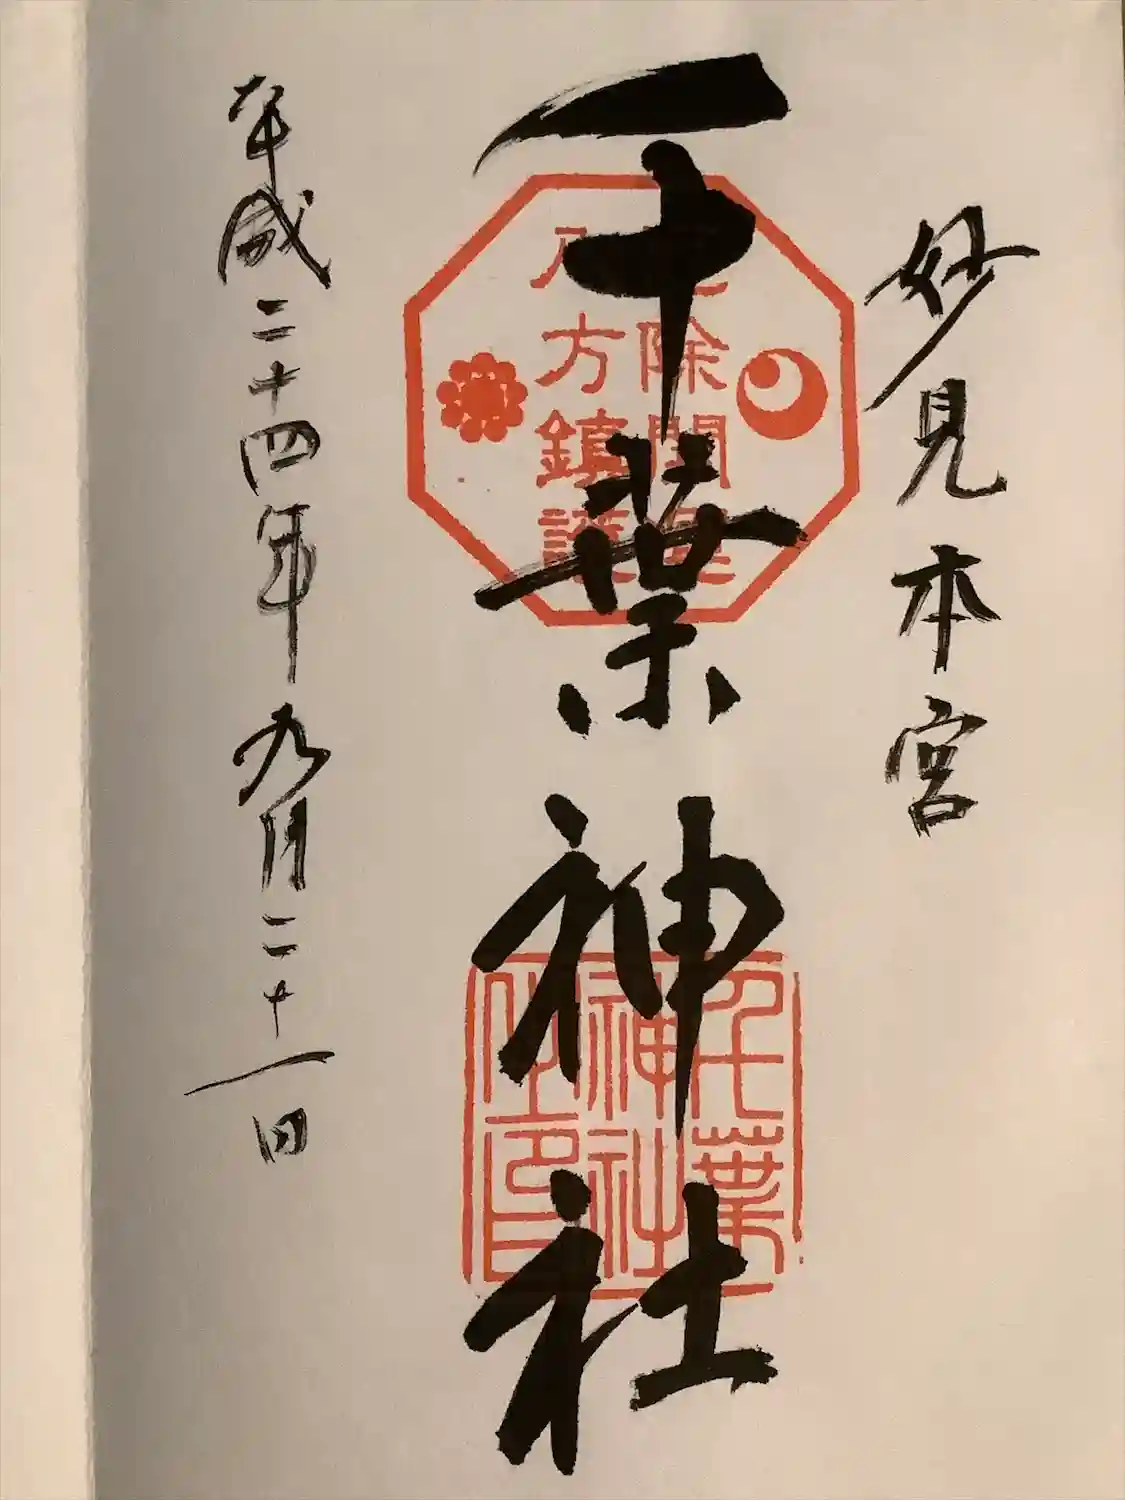 妙見本宮
千葉神社
平成二十四年九月二十一日
厄除開運
八方鎮護
千葉
神社
之印